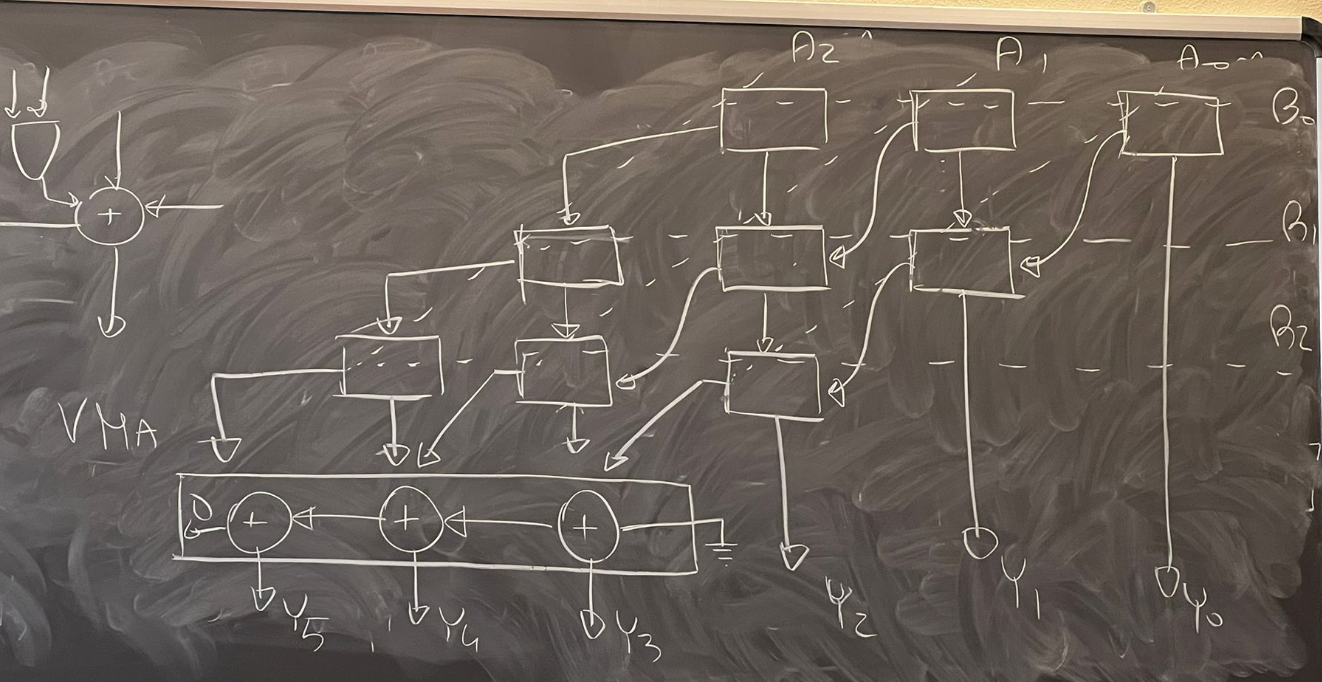 A2 A1 A0
B0
+
B1
B2
VMA
0 + + +
Y5 Y4 Y3 Y2 Y1 Y0